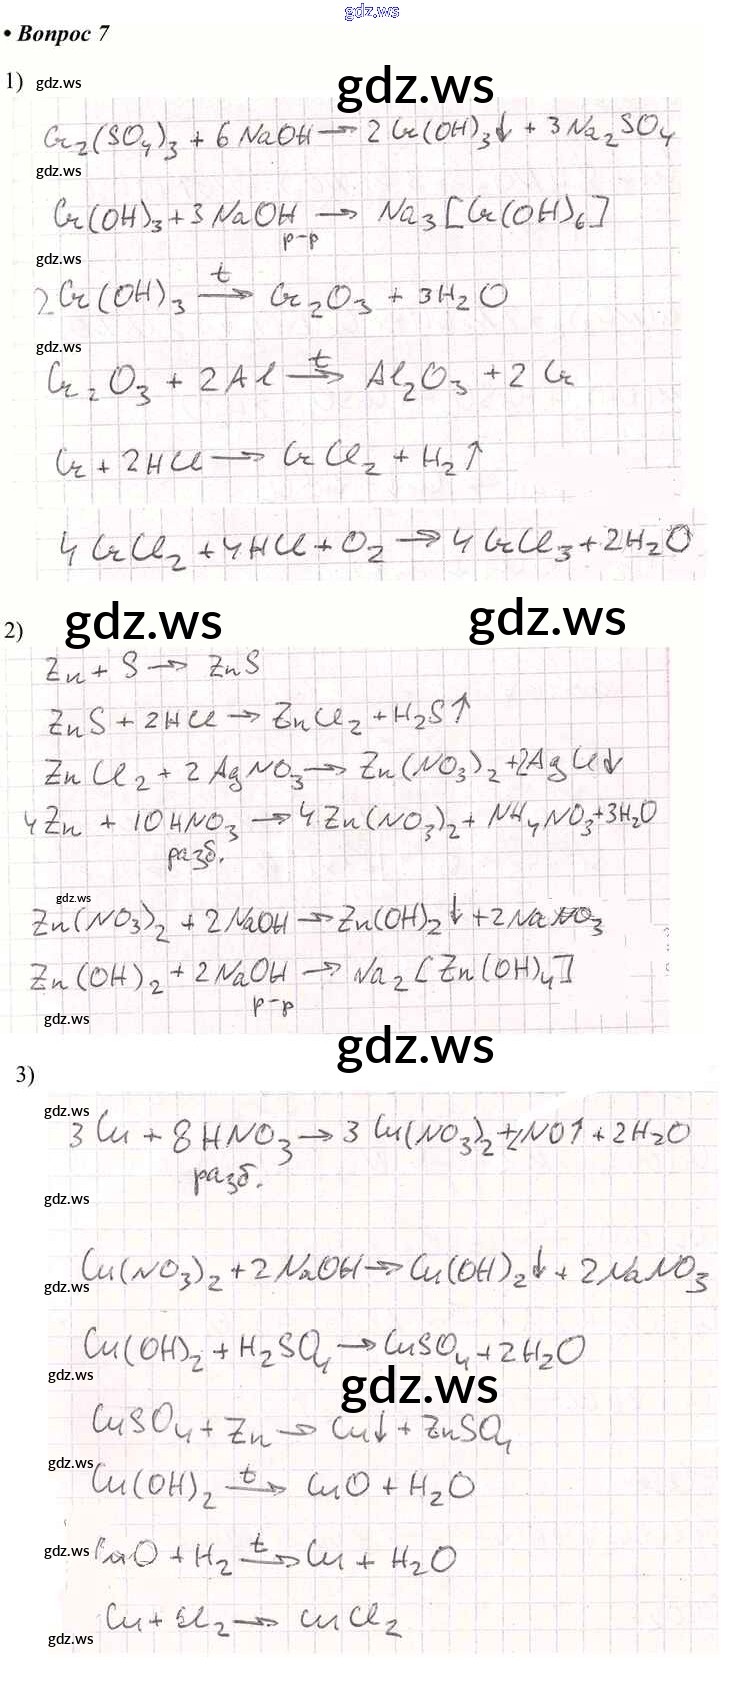 gdz.ws
• Вопрос 7
1) gdz.ws gdz.ws
Cr₂(SO₄)₃ + 6 NaOH → 2 Cr(OH)₃↓ + 3 Na₂SO₄
gdz.ws
Cr(OH)₃ + 3 NaOH → Na₃[Cr(OH)₆]
р-р
gdz.ws
2 Cr(OH)₃ t→ Cr₂O₃ + 3H₂O
gdz.ws
Cr₂O₃ + 2 Al t→ Al₂O₃ + 2 Cr
Cr + 2HCl → CrCl₂ + H₂↑
4 CrCl₂ + 4HCl + O₂ → 4 CrCl₃ + 2H₂O
2) gdz.ws gdz.ws
Zn + S → ZnS
ZnS + 2HCl → ZnCl₂ + H₂S↑
ZnCl₂ + 2 AgNO₃ → Zn(NO₃)₂ + 2AgCl↓
4 Zn + 10 HNO₃ → 4 Zn(NO₃)₂ + NH₄NO₃ + 3H₂O
разб.
gdz.ws
Zn(NO₃)₂ + 2 NaOH → Zn(OH)₂↓ + 2 NaNO₃
Zn(OH)₂ + 2 NaOH → Na₂[Zn(OH)₄]
р-р
gdz.ws gdz.ws
3)
gdz.ws
3 Cu + 8 HNO₃ → 3 Cu(NO₃)₂ + 2NO↑ + 2H₂O
разб.
gdz.ws
Cu(NO₃)₂ + 2 NaOH → Cu(OH)₂↓ + 2 NaNO₃
gdz.ws
Cu(OH)₂ + H₂SO₄ → CuSO₄ + 2H₂O
gdz.ws gdz.ws
CuSO₄ + Zn → Cu↓ + ZnSO₄
gdz.ws
Cu(OH)₂ t→ CuO + H₂O
gdz.ws
CuO + H₂ t→ Cu + H₂O
Cu + Cl₂ → CuCl₂
gdz.ws